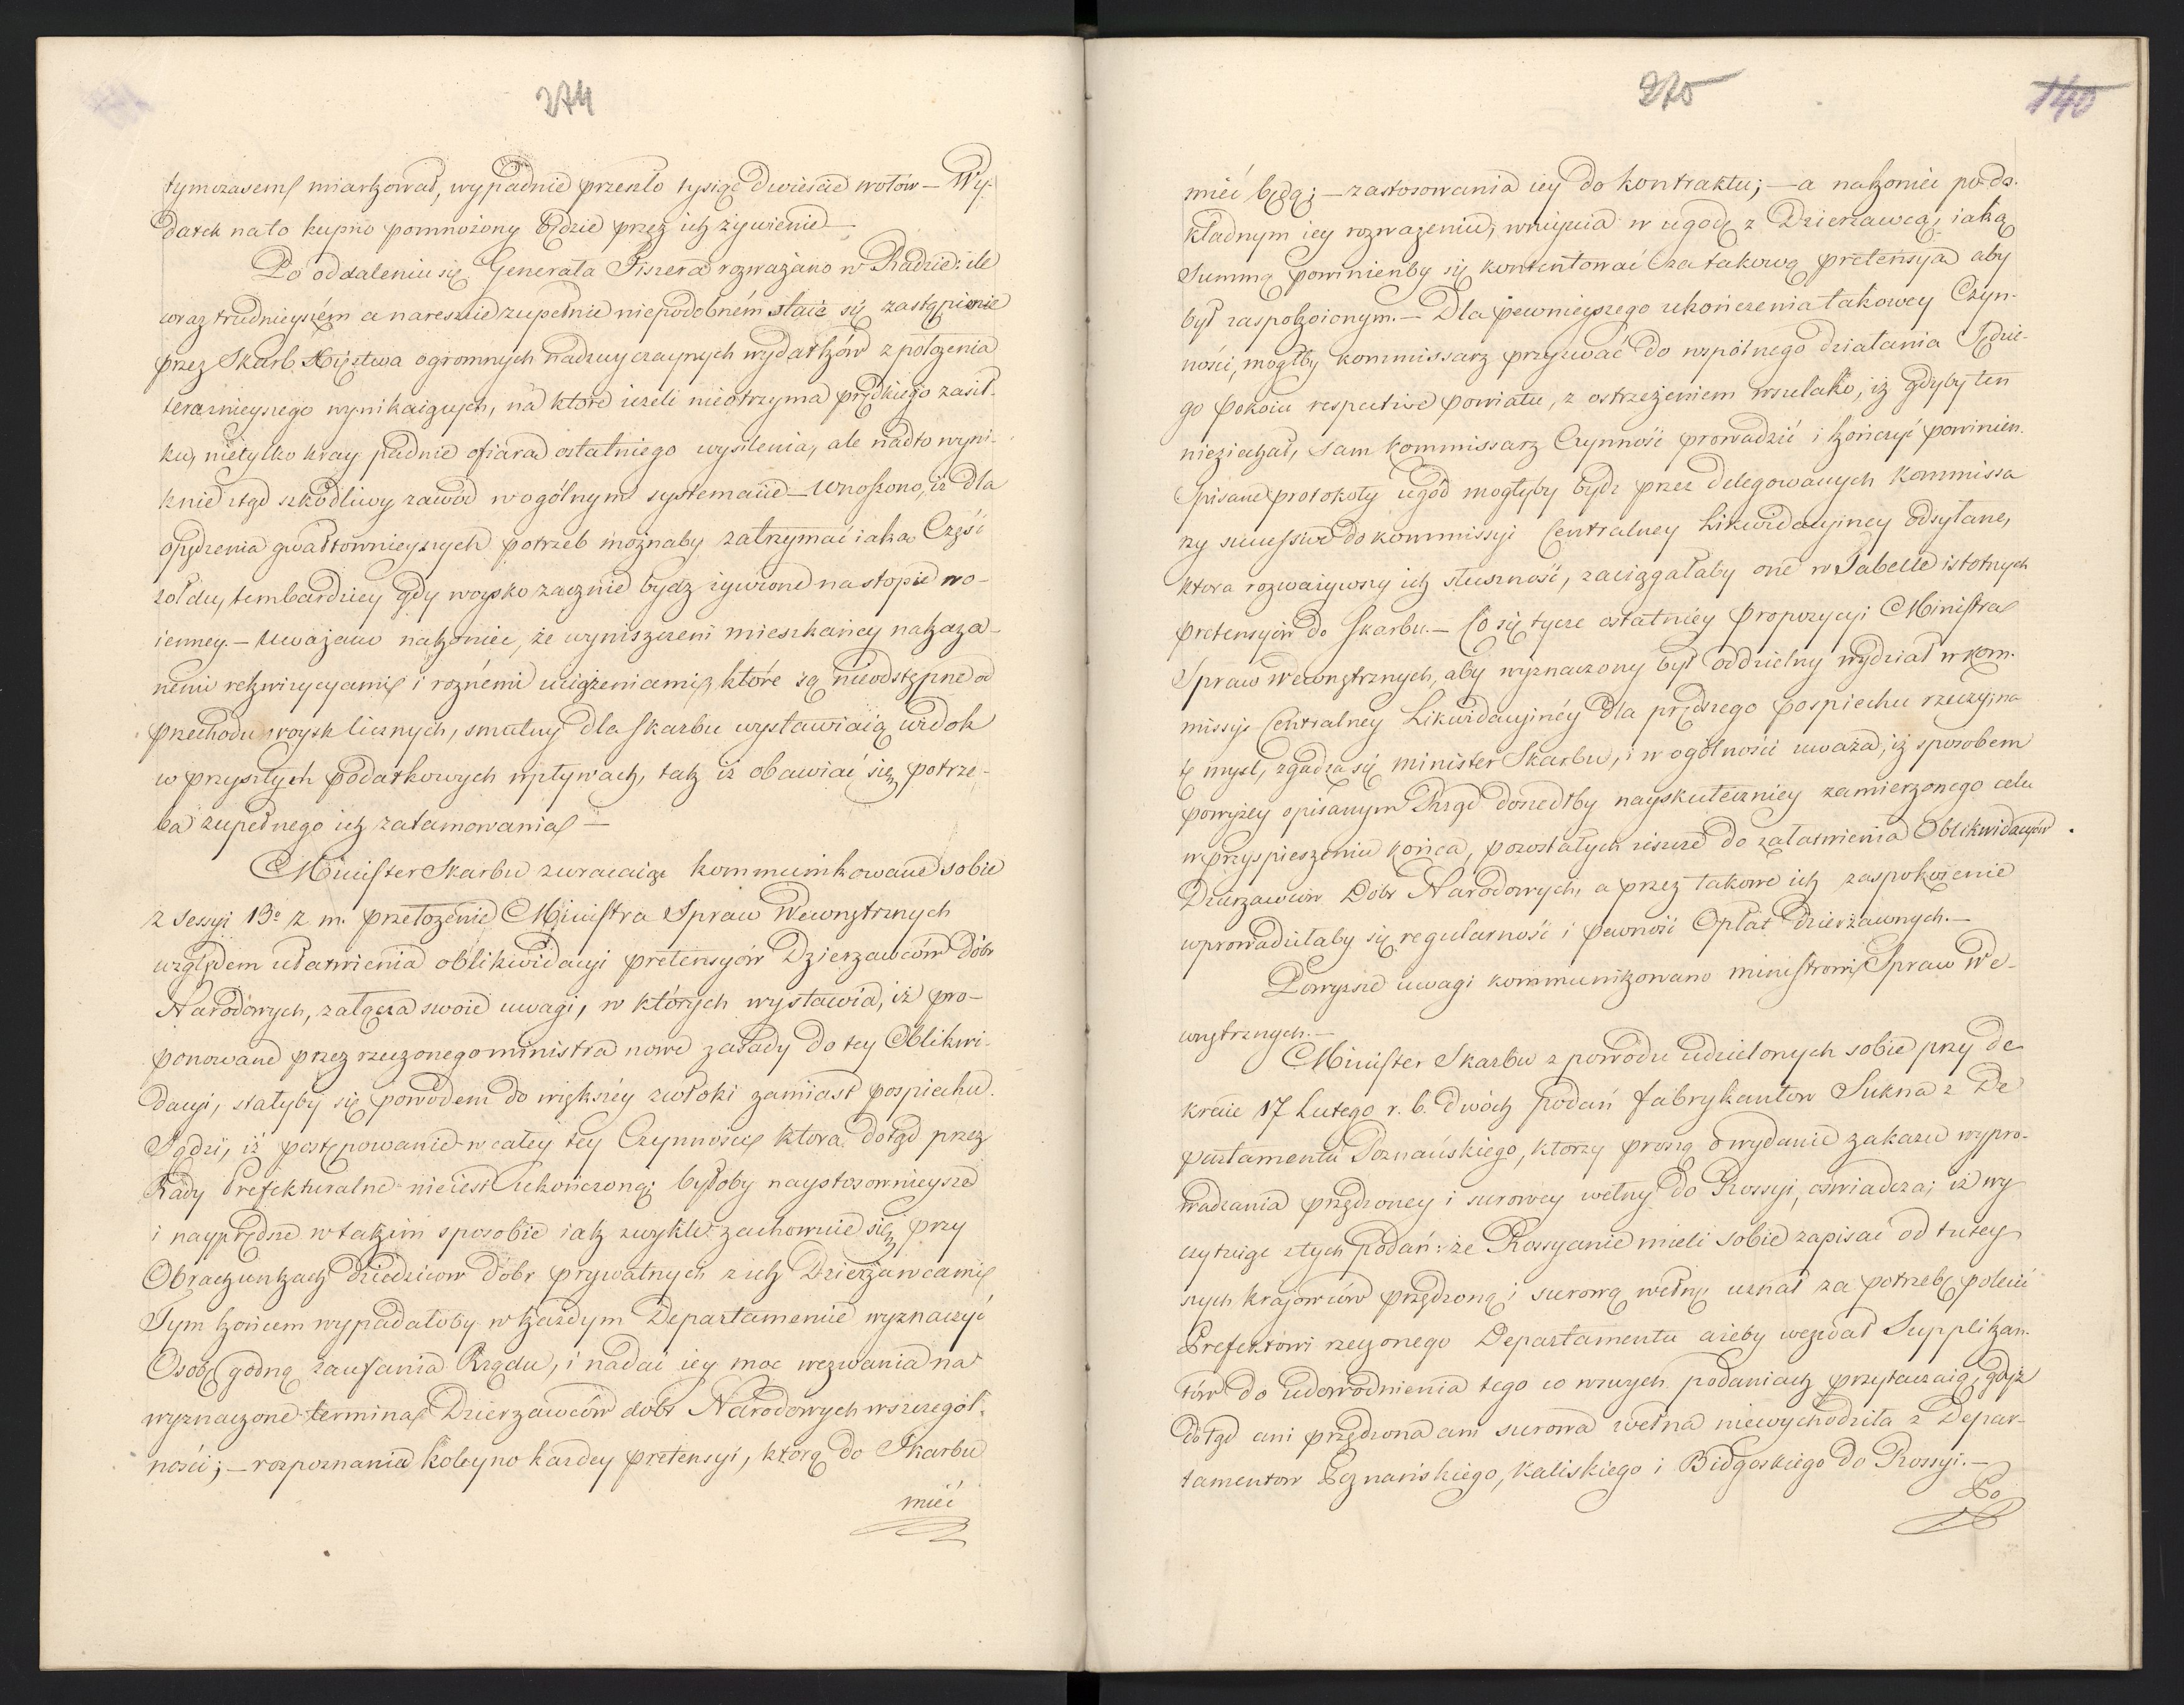 274
tymczasem miarkował, wypadnie przeszło tysiąc dwieście wołów – Wy-
datek na to kupno pomnożony będzie przez ich żywienie –
Po oddaleniu się Generała Fiszera rozważano w Radzie: ile
coraz trudnieyszém a nareszcie zupełnie niepodobném staie się zastąpienie
przez Skarb Xięztwa ogromnych nadzwyczaynych wydatków z położenia
teraznieyszego wynikaiących, na które ieżeli nieotrzyma prędkiego zasił-
ku, nietylko kray padnie ofiarą ostatniego wysilenia, ale nadto wyni-
knie ztąd szkodliwy zawód w ogólnym systemacie – Wnoszono, iż dla
opędzenia gwałtownieyszych potrzeb możnaby zatrzymać iaką Część
żołdu, tembardziey gdy woysko zacznie bydz żywione na stopie wo-
ienney. – Uważano nakoniec, że wyniszczeni mieszkańcy nakaza-
nemi rekwizycyami i roznémi uciążeniami, które są nieodstępne od
przechodu woysk licznych, smutny dla Skarbu wystawiaią widok
w przyszłych podatkowych wpływach, tak iż obawiać się potrze-
ba zupełnego ich zatamowania –
Minister Skarbu zwracaiąc kommunikowane sobie
z Sessyi 13º z. m. przełożenie Ministra Spraw Wewnętrznych
względem ułatwienia oblikwidacyi pretensyów Dzierzawców Dóbr
Narodowych, załącza swoie uwagi, w których wystawia, iż pro-
ponowane przez rzeczonego ministra nowe zasady do tey Oblikwi-
dacyi, stałyby się powodem do większéy zwłoki zamiast pospiechu.
Sądzi, iż postępowanie w całey tey Czynności, ktora dotąd przez
Rady Prefekturalne nieiest ukończoną; byłoby naystosownieysze
i nayprędsze w takim sposobie iak zwykle zachowuie się przy
Obrachunkach Dziedzicow Dóbr prywatnych z ich Dzierżawcami
Tym końcem wypadałoby w każdym Departamencie wyznaczyć
Osobę godną zaufania Rządu, i nadać iey moc wezwania na
wyznaczone termina Dzierzawców dóbr Narodowych wszczegól-
ności; – rozpoznania koleyno każdey pretensyi, którą do Skarbu
mieć
275
140
mieć będą; – zastosowania iey do kontraktu; – a nakoniec po do-
kładnym iey rozważeniu, weyścia w ugodę z Dzierzawcą, iaką
Summą powinienby się kontentować za takową pretensyą aby
był zaspokoionym. – Dla pewnieyszego ukończenia takowey Czyn-
ności, mógłby kommissarz przyzwać do wspólnego działania Sędzie-
go pokoiu respective powiatu, z ostrzeżeniem wszelako, iż gdyby ten
niezjechał, sam kommissarz Czynność prowadzić i kończyć powinien.
Spisane protokoły ugód mogłyby bydz przez delegowanych kommissa
rzy successive do kommissyi Centralney Likwidacyiney odsyłane,
ktora rozważywszy ich słuszność, zaciągałaby one w Tabelle istotnych
pretensyów do Skarbu. – Co się tycze ostatniéy propozycyi Ministra
Spraw Wewnętrznych, aby wyznaczony był oddzielny wydział w kom-
missyi Centralney Likwidacyinéy dla prędszego pospiechu rzeczy; na
tę myśl, zgadza się minister Skarbu, i w ogólności uważa, iż sposobem
powyżey opisanym Rząd doszedłby nayskuteczniey zamierzonego celu
w przyspieszeniu końca, pozostałych ieszcze do załatwienia Oblikwidacyów
Dzierzawców Dobr Narodowych, a przez takowe ich zaspokoienie
wprowadziłaby się regularność i pewność Opłat Dzierżawnych. –
Powyższe uwagi kommunikowano ministrowi Spraw We-
wnętrznych. –
Minister Skarbu z powodu udzielonych sobie przy de
krecie 17 Lutego r. b. dwóch podań fabrykantow Sukna z De
partamentu Poznańskiego, którzy proszą o wydanie zakazu wypro-
wadzania przędzoney i surowey wełny do Rossyi, oświadcza; iż wy
czytuiąc z tych podań: że Rossyanie mieli sobie zapisać od tutey
szych krajowców przędzoną i surową wełnę uznał za potrzebę polecić
Prefektowi rzeczonego Departamentu ażeby wezwał Supplikan-
tów do udowodnienia tego co wswych podaniach przytaczaią, gdyż
dotąd ani przędzona ani surowa wełna niewychodziła z Depar-
tamentow Poznańskiego, Kaliskiego i Bidgoskiego do Rossyi. –
Po